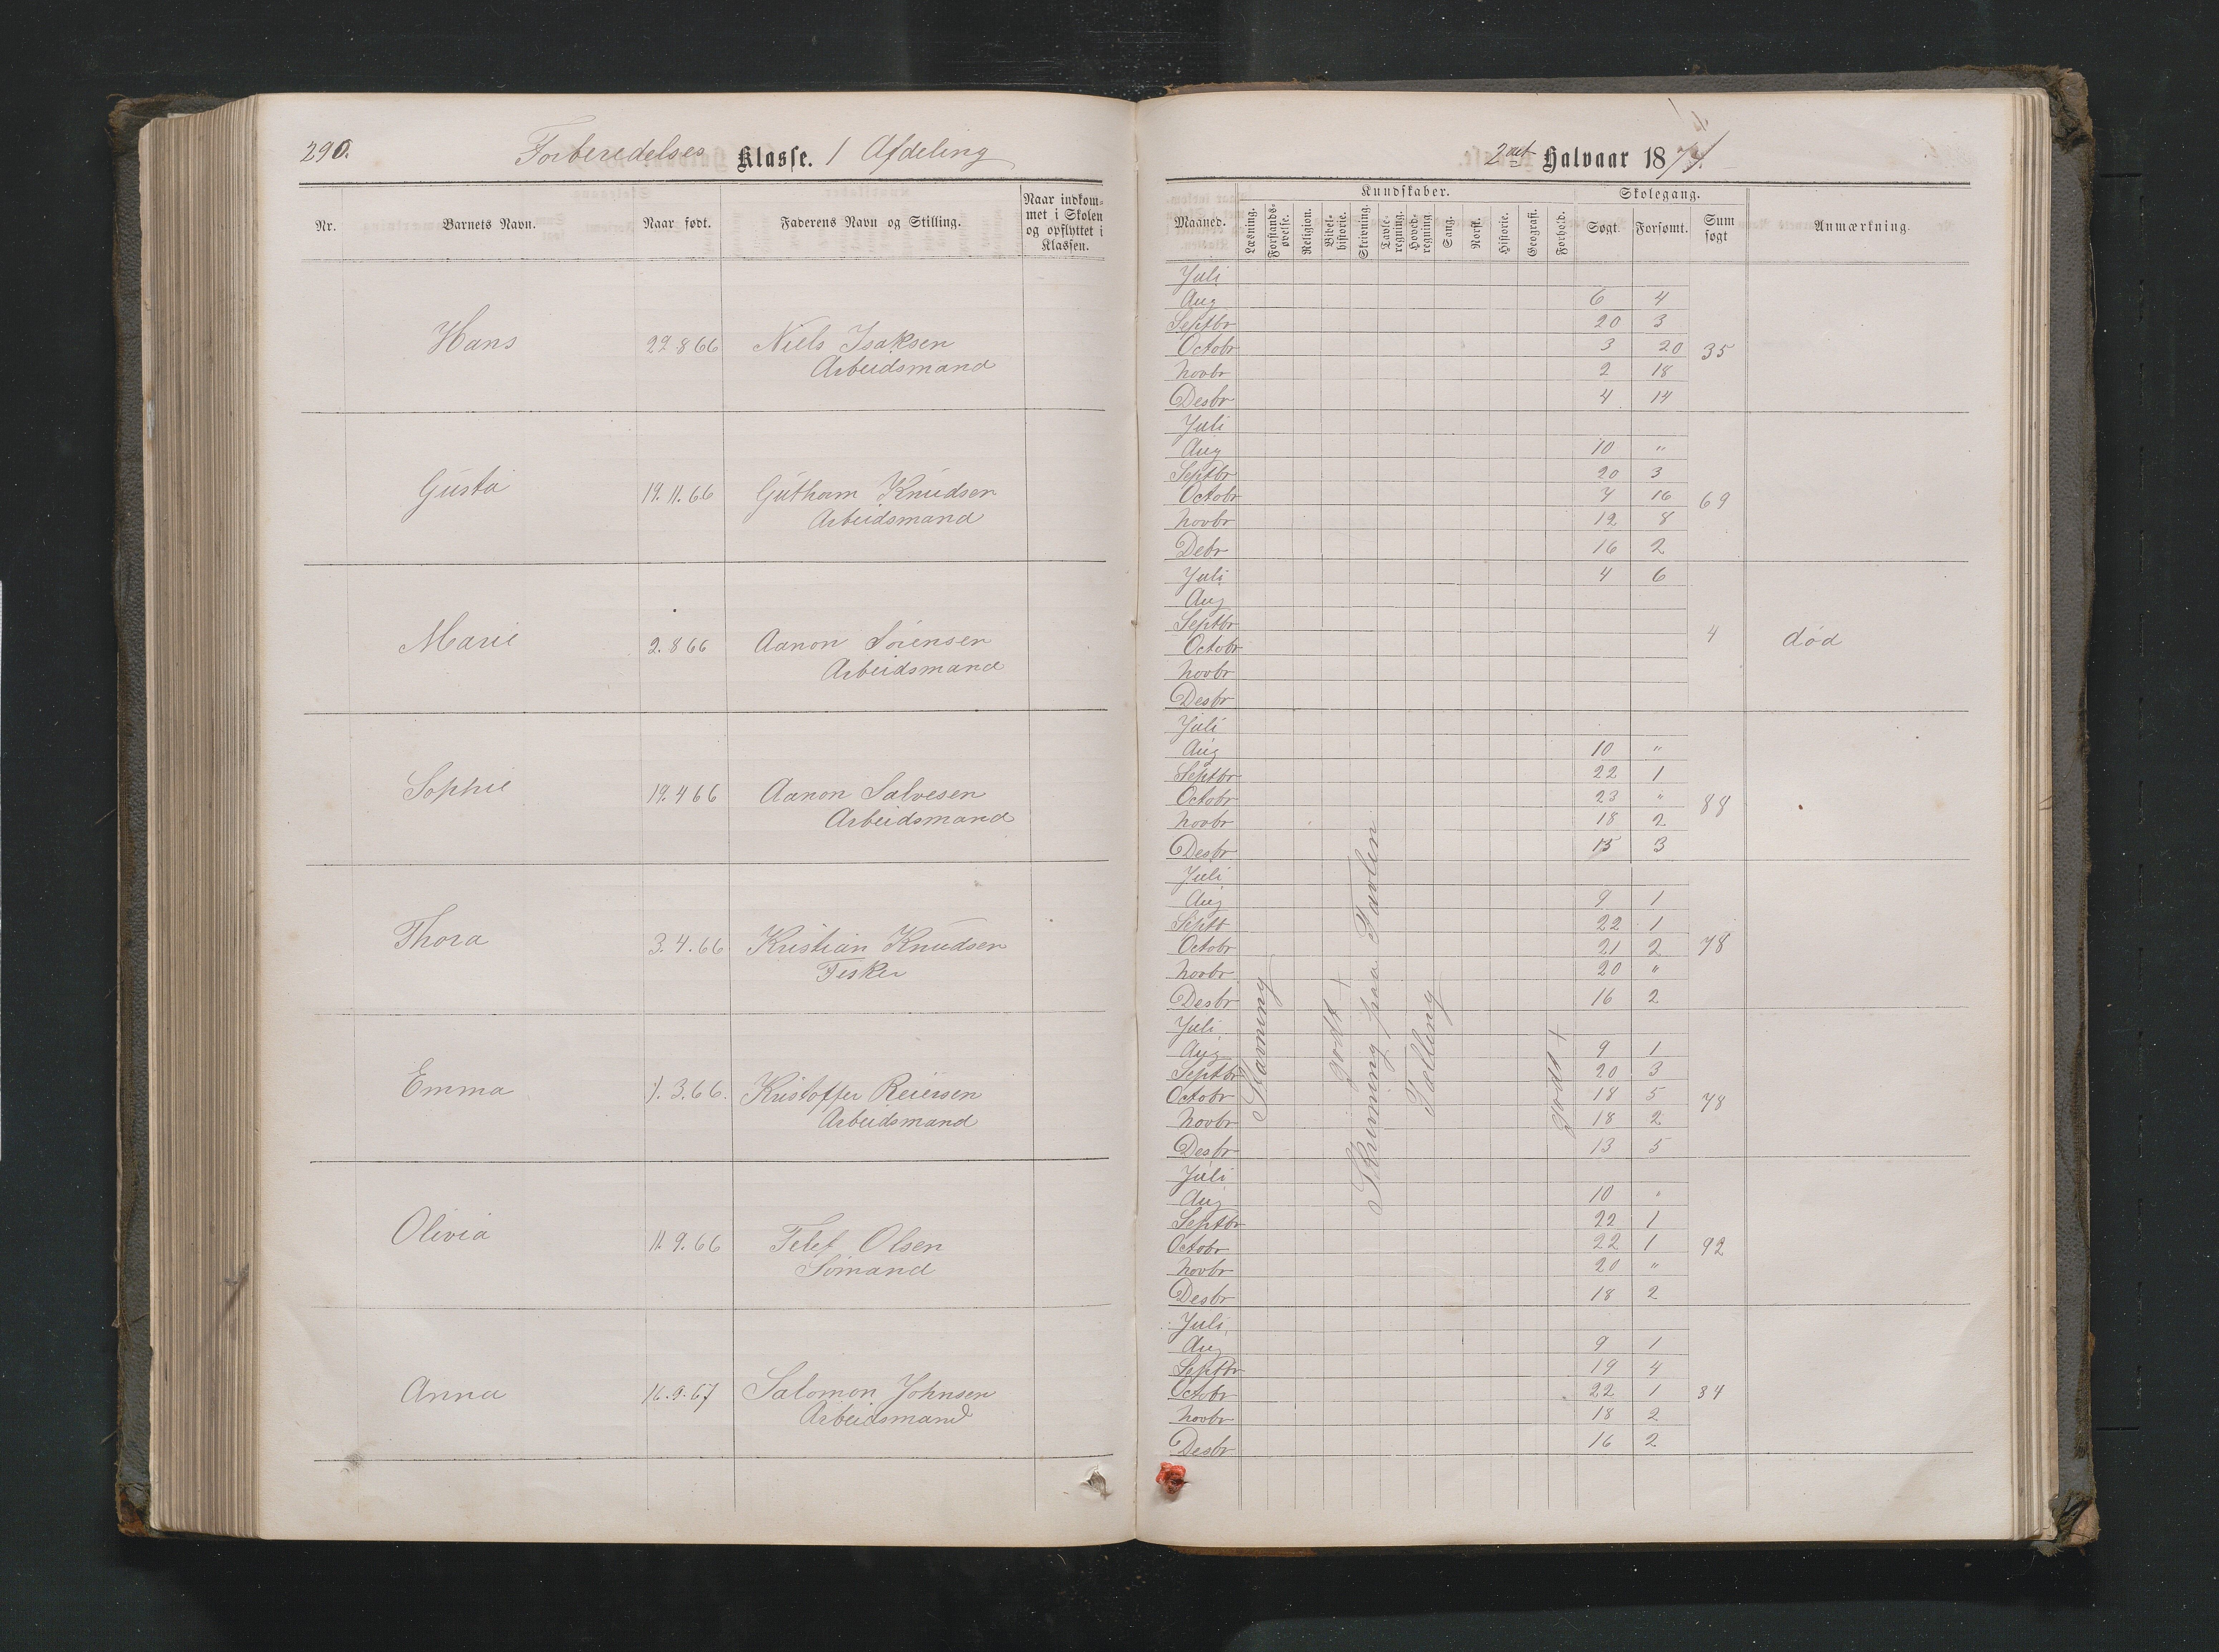 290.
Forberedelses Klasse. 1 Afdeling
Nr.
Barnets Navn.
Naar født.
Faderens Navn og Stilling.
Naar indkom-
met i Skolen
og opflyttet i
Klassen.
Hans 22.8 66 Niels Isaksen
Arbeidsmand
Gusta 19. 11. 66 Guthorm Knudsen
Arbeidsmand
Marie 2. 8 66 Aanon Sörensen
Arbeidsmand
Sophie 19. 4 66 Aanon Salvesen
Arbeidsmand
Thora 3. 4. 66 Kristian Knudsen
Fisker
Emma 3. 66. Kristoffer Reiersen
Arbeidsmand
Olivia 11. 9. 66 Telef Olsen
Sømand
Anna 16. 9. 67 Salomon Johnsen
Arbeidsmand
2det Halvaar 1874.
Maaned.
Kundskaber.
Læsning.
Forstands-
øvelse.
Religion.
Bibel-
historie.
Skrivning.
Tavle-
regning.
Hoved-
regning
Sang.
Norsk.
Historie.
Geografi.
Forhold.
Skolegang.
Søgt.
Forsømt.
Sum
søgt
Anmærkning.
Juli
Aug 6 4
Septbr 20 3
Octobr 3 20 35
Novbr 2 18
Desbr 4 14
Juli
Aug 10 "
Septbr 20 3
Octobr 7 16 69
Novbr 12 8
Debr 16 2
Juli 4 6
Aug
Septbr
Octobr 4 død
Novbr
Desbr
Juli
Aug 10 "
Septbr 22 1
Octobr 23 " 88
Novbr 18 2
Desbr 15 3
Juli
Aug 9 1
Septb 22 1
Octobr 21 2 78
Novbr 20 "
Desbr 16 2
Juli
Aug 9 1
Septbr 20 3
Octobr 18 5 78
Novbr 18 2
Desbr 13 5
Juli
Aug 10 "
Septbr 22 1
Octobr 22 1 92
Novbr 20 "
Desbr 18 2
Juli
Aug 9 1
Septbr 19 4
Octobr 22 1 84
Novbr 18 2
Desbr 16 2
Stavning
godt +
Skrivning paa Tavlen
Tælling
godt +